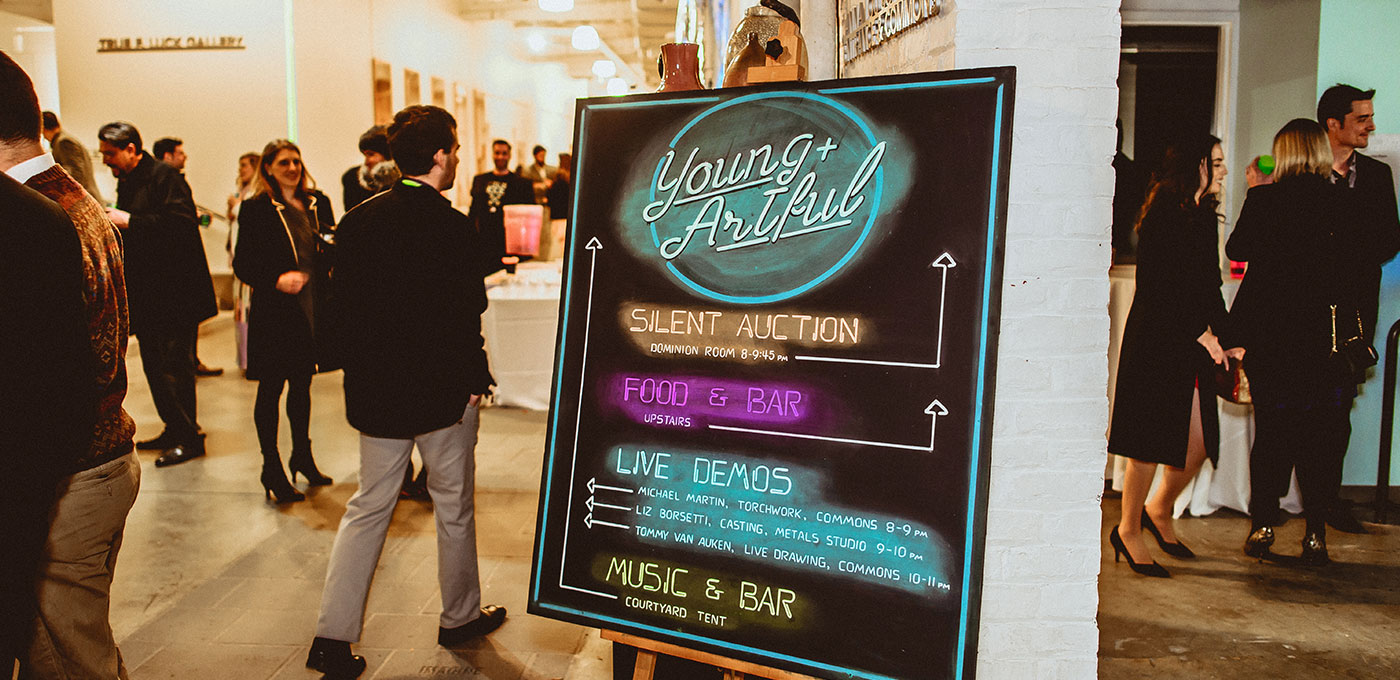 TRUE F. LUCK GALLERY
Young +
Artful
SILENT AUCTION
DOMINION ROOM 8-9:45 PM
FOOD & BAR
UPSTAIRS
LIVE DEMOS
MICHAEL MARTIN, TORCHWORK, COMMONS 8-9 PM
LIZ BORSETTI, CASTING, METALS STUDIO 9-10 PM
TOMMY VAN AUKEN, LIVE DRAWING, COMMONS 10-11 PM
MUSIC & BAR
COURTYARD TENT